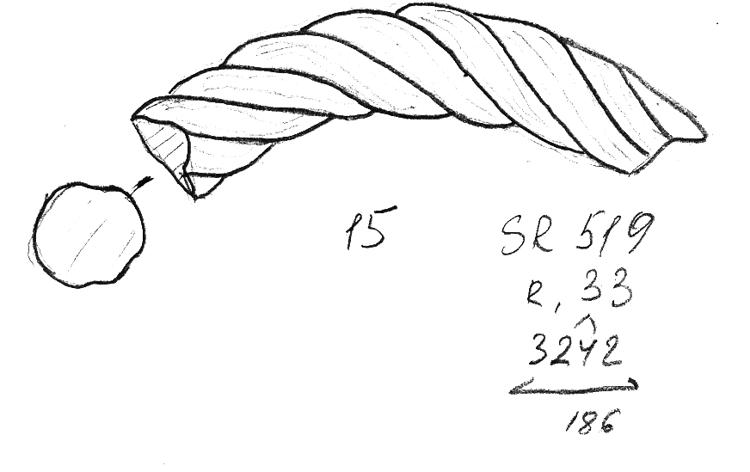 15
SR 519
R, 33
3242
186